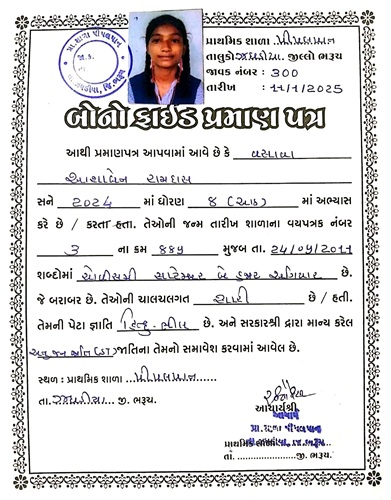 પ્રાથમિક શાળા પીપલપાન
તાલુકો ઝઘડીયા. જીલ્લો ભરૂચ
જાવક નંબર : 300
તારીખ : 11/1/2025
પ્રા.શાળા પીપલપાન
તા. ઝઘડીયા, જિ.ભરૂચ
બોનોફાઇડ પ્રમાણ પત્ર
આથી પ્રમાણપત્ર આપવામાં આવે છે કે વસાવા
આશાબેન રામદાસ
સને 2024 માં ધોરણ ૮ (આઠ) માં અભ્યાસ
કરે છે / કરતા હતા. તેઓની જન્મ તારીખ શાળાના વયપત્રક નંબર
3 ના ક્રમ ૬૬૫ મુજબ તા. 24/09/2011
શબ્દોમાં ચોવીસમી સપ્ટેમ્બર બે હજાર અગિયાર છે.
જે બરાબર છે. તેઓની ચાલચલગત સારી છે / હતી.
તેમની પેટા જ્ઞાતિ હિન્દુ-ભીલ છે. અને સરકારશ્રી દ્વારા માન્ય કરેલ
અનુ.જન જાતિ (ST) જાતિના તેમનો સમાવેશ કરવામાં આવેલ છે.
સ્થળ : પ્રાથમિક શાળા પીપલપાન
તા. ઝઘડીયા જી. ભરૂચ.
આચાર્યશ્રી
આચાર્ય
પ્રા.શાળા પીપલપાન
પ્રાથમિક
તા. જી. ભરૂચ.